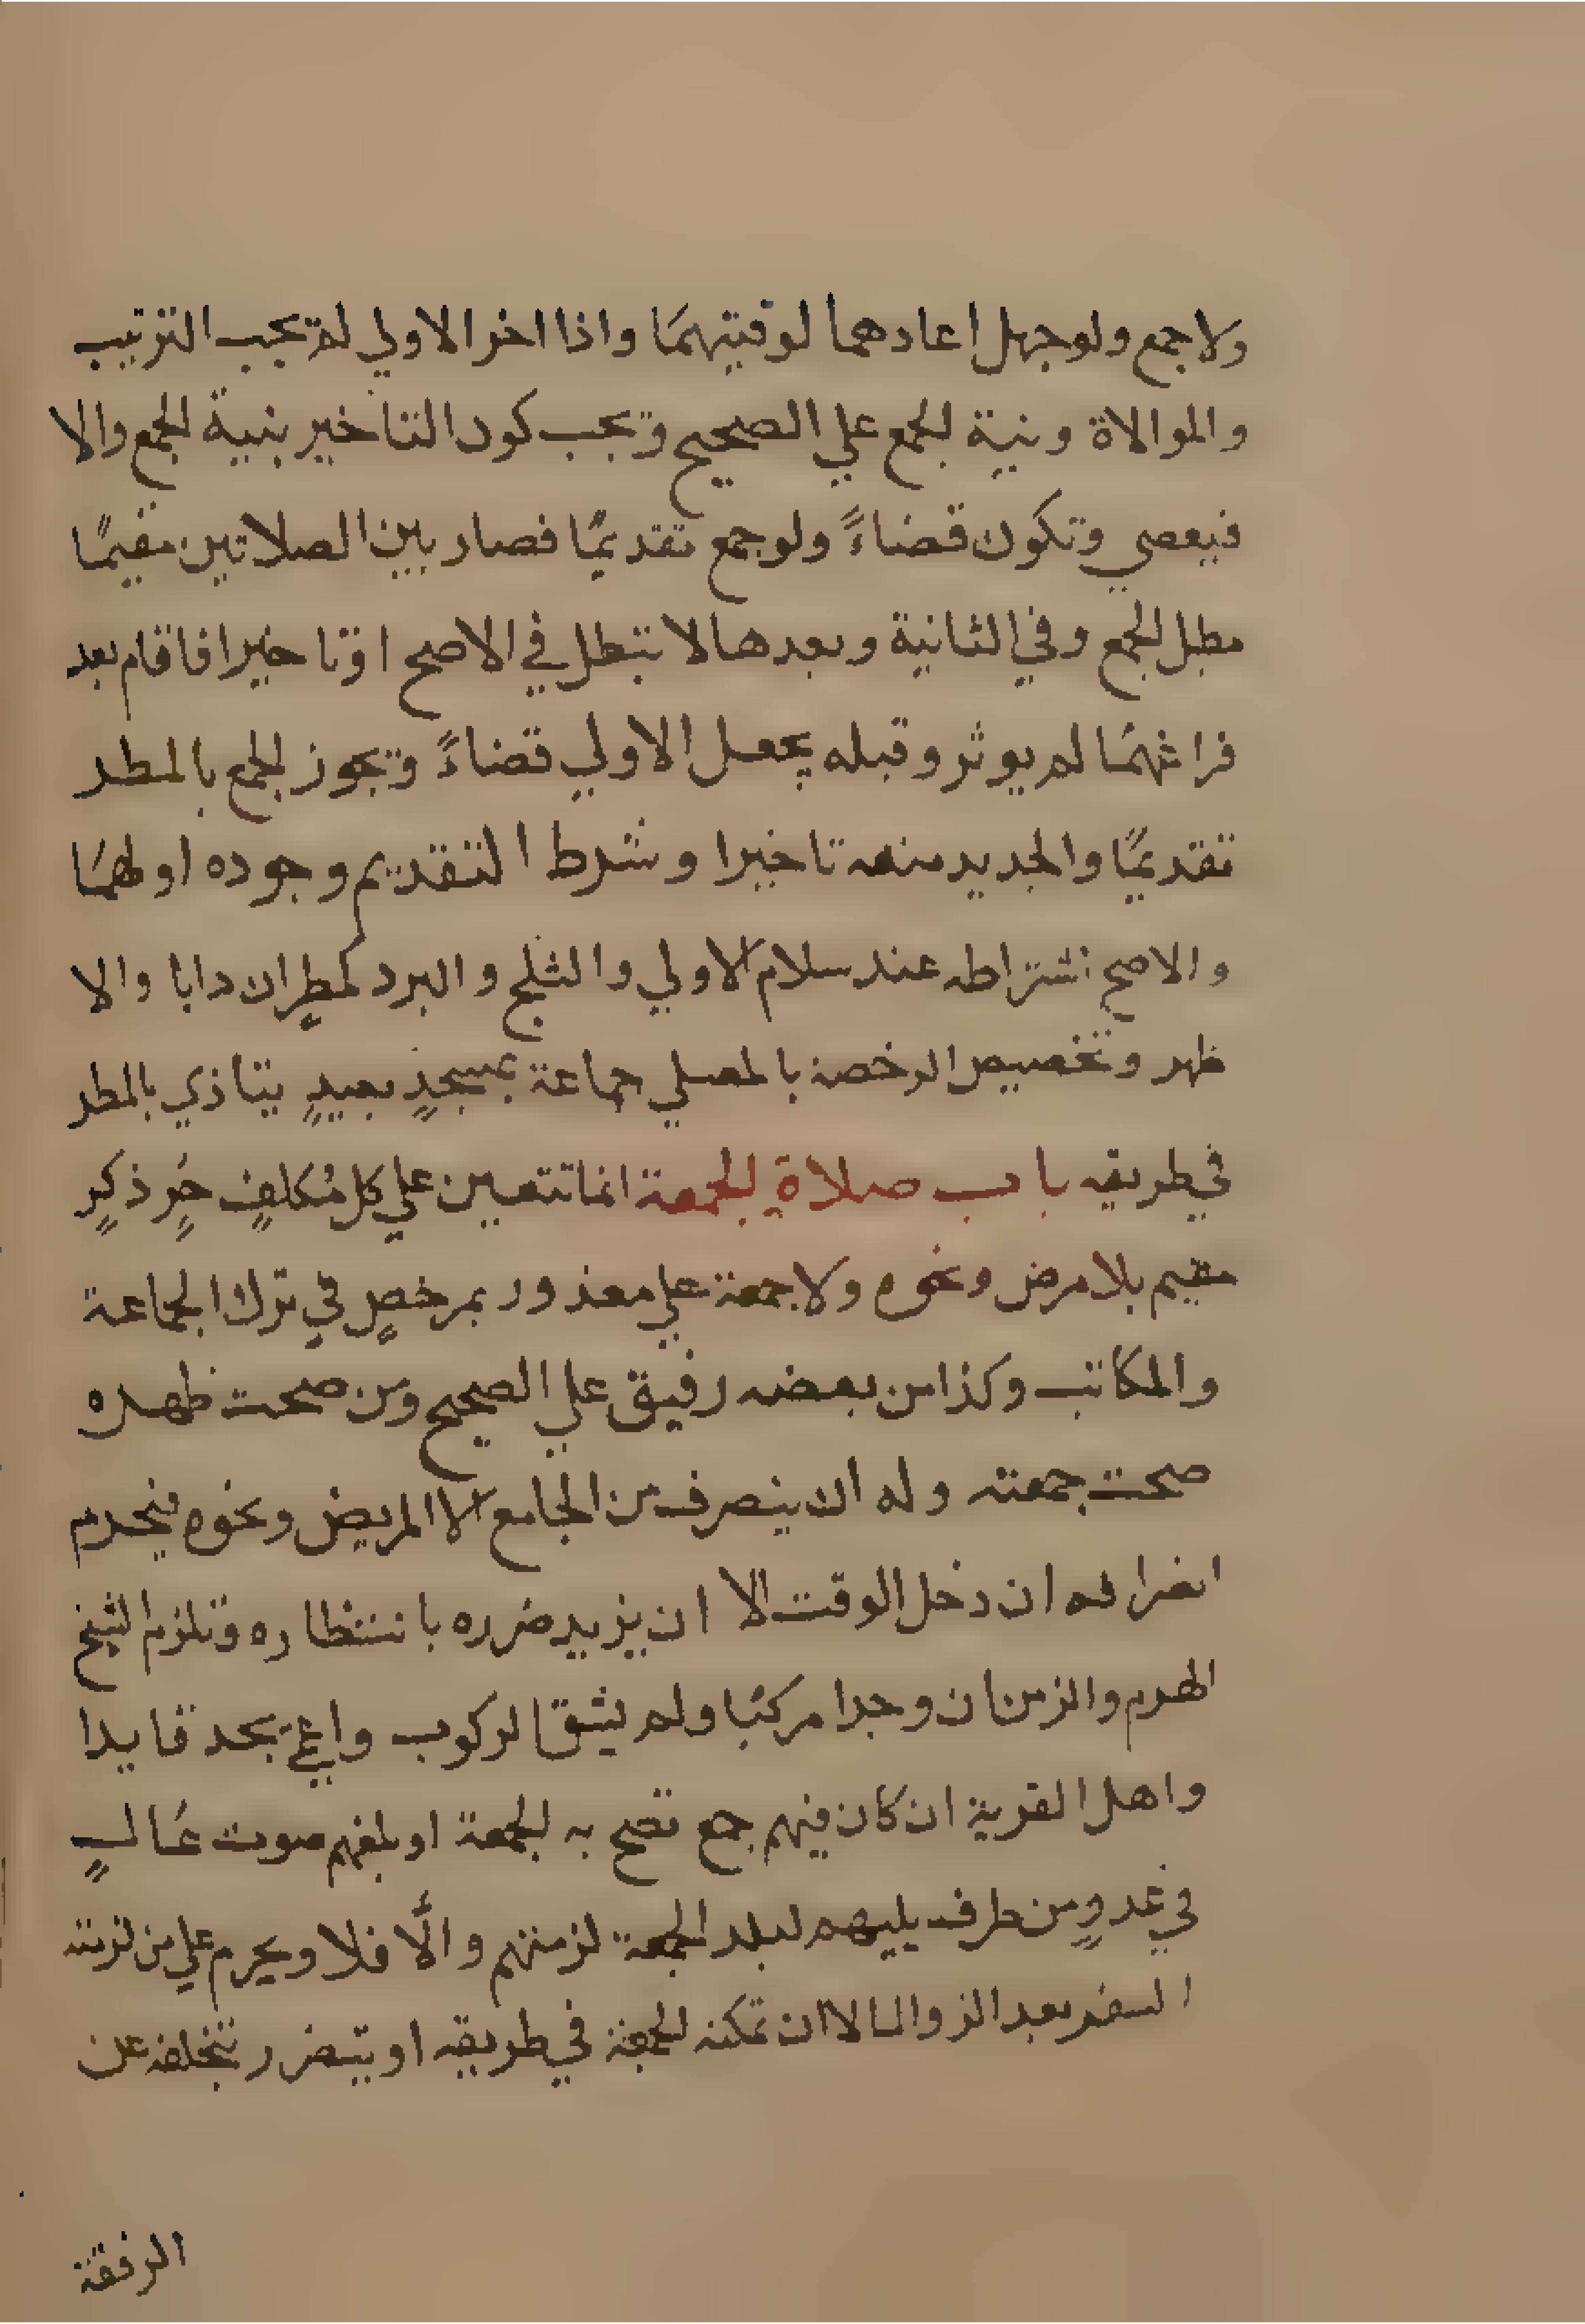 ولا جمع ولو جهل اعادهما لوقتيهما واذا اخر الاولي لم يجب الترتيب
والموالاة ونية الجمع علي الصحيح ويجب كون التاخير بنية الجمع والا
فيعصي وتكون قضاءً ولو جمع تقديمًا فصار بين الصلاتين مقيمًا
بطل الجمع وفي الثانية وبعدها لا تبطل في الاصح او تاخيرا فاقام بعد
فراغهما لم يوثر وقبله يجعل الاولي قضاءً ويجوز الجمع بالمطر
تقديمًا والجديد منعه تاخيرا وشرط التقديم وجوده اولهما
والاصح اشتراطه عند سلام الاولي والثلج والبرد كمطرٍ ان دابا والا
ظهر وتخصيص الرخصة بالمصلي جماعة بمسجدٍ بعيدٍ يتاذي بالمطر
في طريقه باب صلاة الجمعة انما تتعين علي كل مُكلفٍ حُرٍ ذكرٍ
مقيم بلا مرض ونحوه ولا جمعة علي معذور بمرخصٍ في ترك الجماعة
والمكاتب وكذا من بعضه رقيق علي الصحيح ومن صحت ظهره
صحت جمعته وله ان ينصرف من الجامع الا المريض ونحوه فيحرم
انصرافه ان دخل الوقت الا ان يزيد ضرره بانتظاره وتلزم الشيخ
الهرم والزمن ان وجدا مركبًا ولم يشق الركوب واعمي يجد قايدا
واهل القرية ان كان فيهم جمع تصح به الجمعة او بلغهم صوت عَالٍ
في هدوٍ من طرف يليهم لبلد الجمعة لزمتهم والّا فلا ويحرم علي من لزمته
السفر بعد الزوال الا ان تمكنه الجمعة في طريقه او يتضرر بتخلفه عن
الرفقة